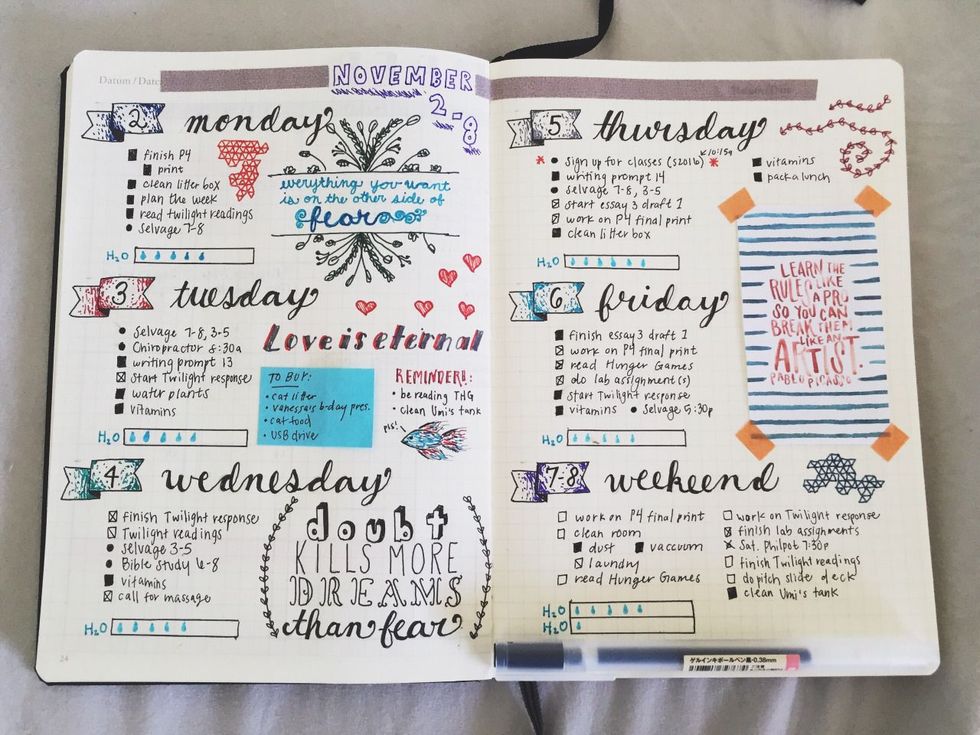 Datum / Date:
NOVEMBER
2-8
2 monday
finish P4
print
clean litter box
plan the week
read twilight readings
selvage 7-8
H2O
everything you want
is on the other side of
fear
3 tuesday
Selvage 7-8, 3-5
Chiropractor 8:30a
writing prompt 13
start Twilight response
water plants
vitamins
H2O
Love is eternal
TO BUY:
• cat litter
• vanessa's b-day pres.
• cat food
• USB drive
REMINDER!!:
• be reading THG
• clean Umi's tank
pls!
4 wednesday
finish Twilight response
Twilight readings
selvage 3-5
Bible Study 6-8
vitamins
call for massage
H2O
doubt
KILLS MORE
DREAMS
than fear
24
5 thursday
10:15a
* sign up for classes (S2016) *
writing prompt 14
selvage 7-8, 3-5
start essay 3 draft 1
work on P4 final print
clean litter box
vitamins
pack a lunch
H2O
6 friday
finish essay 3 draft 1
work on P4 final print
read Hunger Games
do lab assignment(s)
start Twilight response
vitamins • Selvage 5:30p
H2O
LEARN THE
RULES LIKE
A PRO
SO YOU CAN
BREAK THEM
LIKE AN
ARTIST.
PABLO PICASSO
7-8 weekend
work on P4 final print
clean room
dust
vaccuum
laundry
read Hunger Games
work on Twilight response
finish lab assignments
Sat. Philpot 7:30p
finish Twilight readings
do pitch slide deck
clean Umi's tank
H2O
H2O
ゲルインキボールペン黒・0.38mm